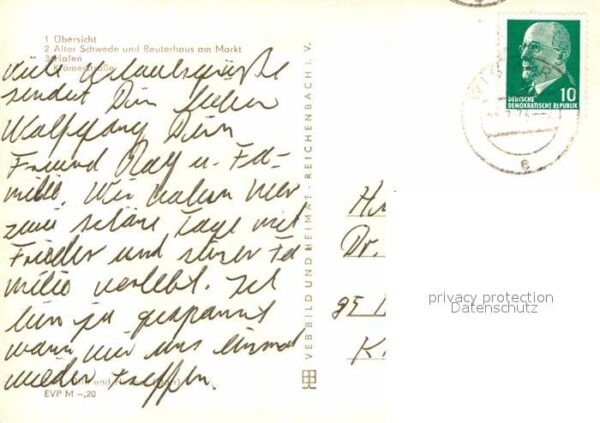 1 Übersicht
2 Alter Schwede und Reuterhaus am Markt
3 Hafen
4 Krämerstraße
Viele Urlaubsgrüße
sendet Dir lieber
Wolfgang Dein
Freund Ralf u. Fa-
milie. Wir haben hier
zwei schöne Tage mit
Frieder und seiner Fa
milie verlebt. Ich
bin ja gespannt
wann wir uns einmal
wieder treffen.
EVP M –,20
VEB BILD UND HEIMAT · REICHENBACH i. V.
10
DEUTSCHE
DEMOKRATISCHE REPUBLIK
WIS
e
H
Dr.
95
K
privacy protection
Datenschutz